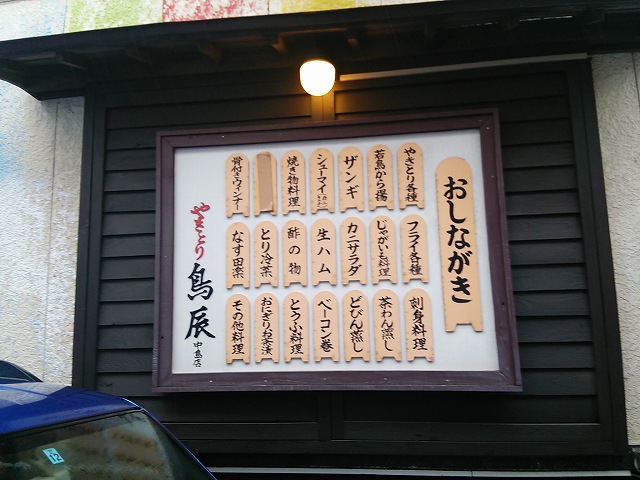 おしながき
やきとり各種
若鳥から揚
ザンギ
シューマイ
焼き物料理
骨付きウィンナー
フライ各種
じゃがいも料理
カニサラダ
生ハム
酢の物
とり冷菜
なす田楽
刺身料理
茶わん蒸し
どびん蒸し
ベーコン巻
とうふ料理
おにぎりお茶漬
その他料理
やきとり
鳥辰
中島店
12